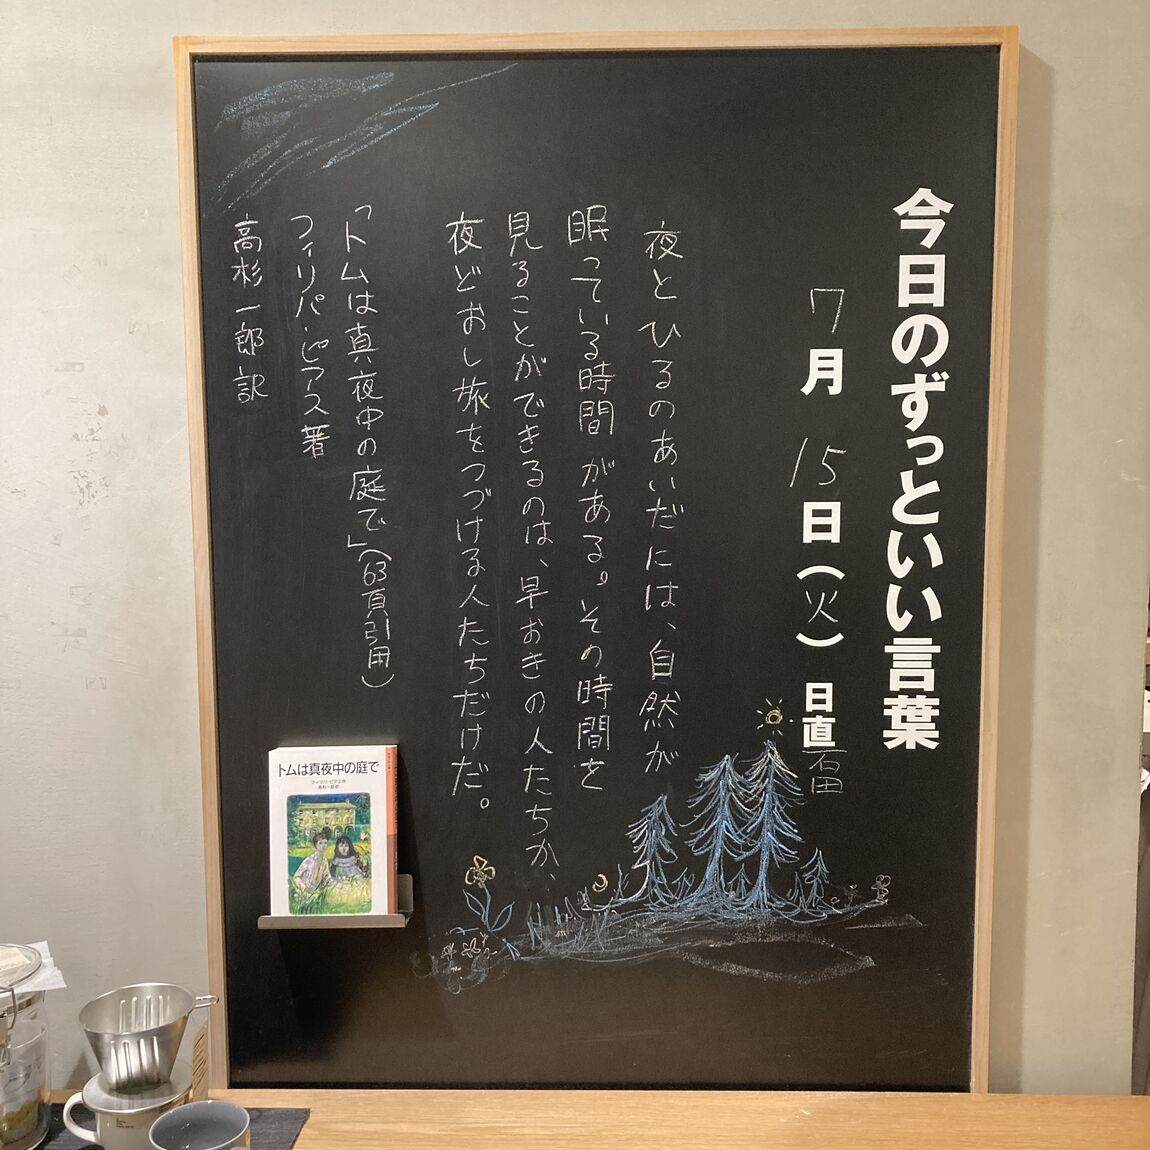 今日のずっといい言葉
7月15日(火)日直 石田
夜とひるのあいだには、自然が
眠っている時間がある。その時間を
見ることができるのは、早おきの人たちか、
夜どおし旅をつづける人たちだけだ。
「トムは真夜中の庭で」(63頁引用)
フィリパ・ピアス著
高杉一郎訳
トムは真夜中の庭で
フィリパ・ピアス作
高杉一郎訳